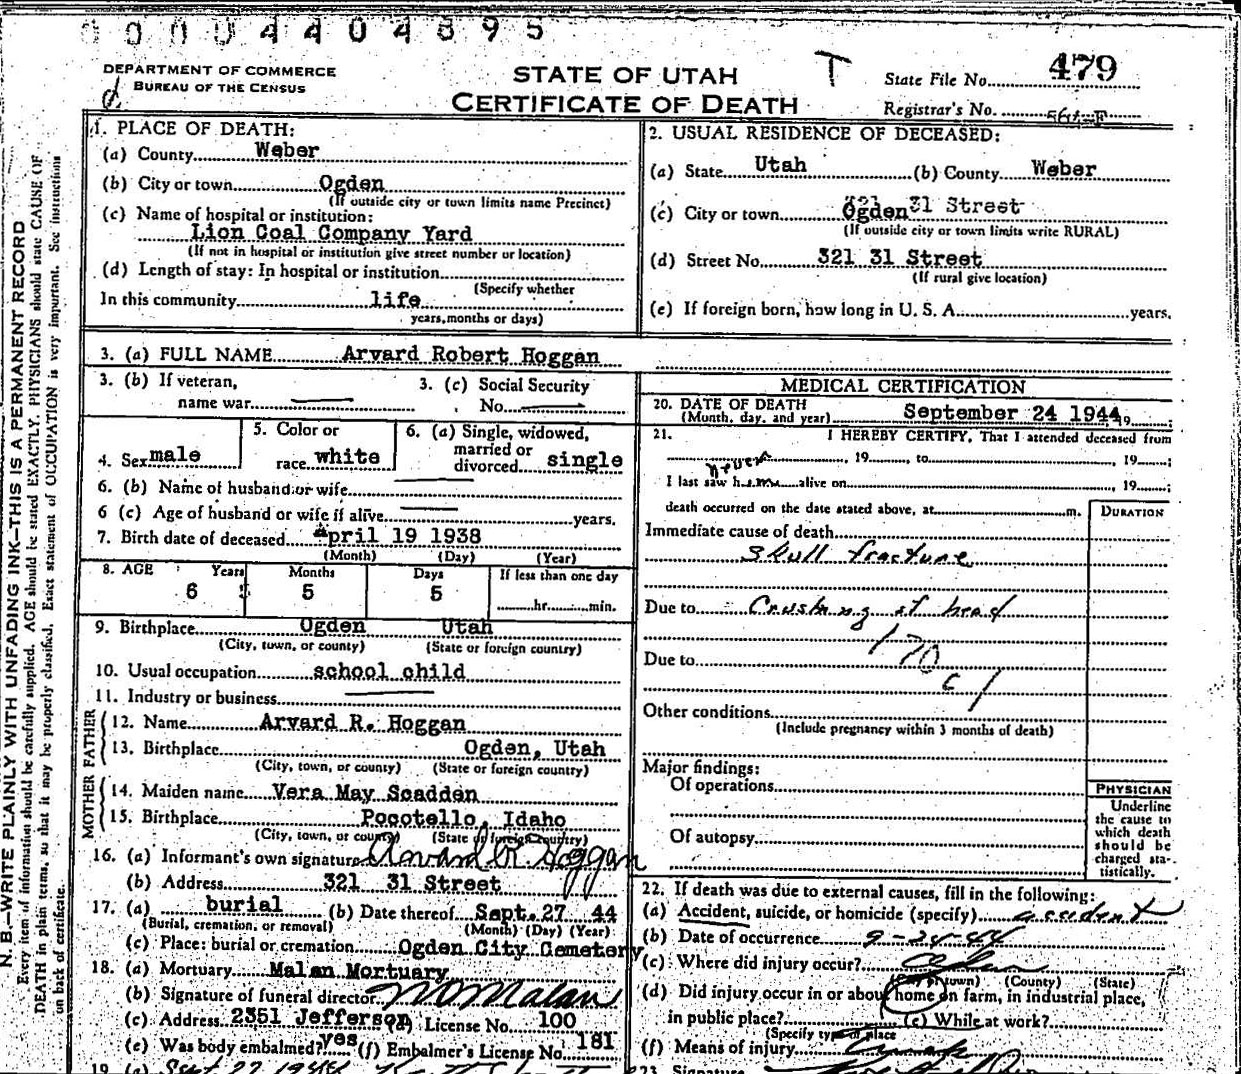 0 0 0 0 4 4 0 4 8 9 5
DEPARTMENT OF COMMERCE
BUREAU OF THE CENSUS
STATE OF UTAH
CERTIFICATE OF DEATH
T
State File No. 479
Registrar's No.
N. B.—WRITE PLAINLY WITH UNFADING INK—THIS IS A PERMANENT RECORD
Every item of information should be carefully supplied. AGE should be stated EXACTLY. PHYSICIANS should state CAUSE OF
DEATH in plain terms, so that it may be properly classified. Exact statement of OCCUPATION is very important. See instruction
on back of certificate.
1. PLACE OF DEATH:
(a) County Weber
(b) City or town Ogden
(If outside city or town limits name Precinct)
(c) Name of hospital or institution:
Lion Coal Company Yard
(If not in hospital or institution give street number or location)
(d) Length of stay: In hospital or institution
(Specify whether
In this community life
years, months or days)
2. USUAL RESIDENCE OF DECEASED:
(a) State Utah (b) County Weber
(c) City or town Ogden 31 Street
(If outside city or town limits write RURAL)
(d) Street No. 321 31 Street
(If rural give location)
(e) If foreign born, how long in U. S. A. years.
3. (a) FULL NAME Arvard Robert Hoggan
3. (b) If veteran, name war
3. (c) Social Security No.
4. Sex male
5. Color or race white
6. (a) Single, widowed, married or divorced single
6. (b) Name of husband or wife
6 (c) Age of husband or wife if alive years.
7. Birth date of deceased April 19 1938
(Month) (Day) (Year)
8. AGE Years Months Days If less than one day
6 5 5 hr. min.
9. Birthplace Ogden Utah
(City, town, or county) (State or foreign country)
10. Usual occupation school child
11. Industry or business
FATHER
12. Name Arvard R. Hoggan
13. Birthplace Ogden, Utah
(City, town, or county) (State or foreign country)
MOTHER
14. Maiden name Vera May Scadden
15. Birthplace Pocotello, Idaho
(City, town, or county) (State or foreign country)
16. (a) Informant's own signature Arvard R. Hoggan
(b) Address 321 31 Street
17. (a) burial (b) Date thereof Sept. 27 44
(Burial, cremation, or removal) (Month) (Day) (Year)
(c) Place: burial or cremation Ogden City Cemetery
18. (a) Mortuary Malan Mortuary
(b) Signature of funeral director N O Malan
(c) Address 2351 Jefferson (d) License No. 100
(e) Was body embalmed? yes (f) Embalmer's License No. 181
19. (a) Sept 27 1944
MEDICAL CERTIFICATION
20. DATE OF DEATH
(Month, day, and year) September 24 1944, 19
21. I HEREBY CERTIFY, That I attended deceased from
, 19 , to , 19 ;
never
I last saw him alive on , 19 ;
death occurred on the date stated above, at m.
DURATION
Immediate cause of death
Skull fracture
Due to Crushing of head
170
Due to
c 1
Other conditions
(Include pregnancy within 3 months of death)
Major findings:
Of operations
Of autopsy
PHYSICIAN
Underline
the cause to
which death
should be
charged sta-
tistically.
22. If death was due to external causes, fill in the following:
(a) Accident, suicide, or homicide (specify) accident
(b) Date of occurrence 9-24-44
(c) Where did injury occur? Ogden
(City or town) (County) (State)
(d) Did injury occur in or about home on farm, in industrial place,
in public place? (e) While at work?
(Specify type of place
(f) Means of injury
23. Signature